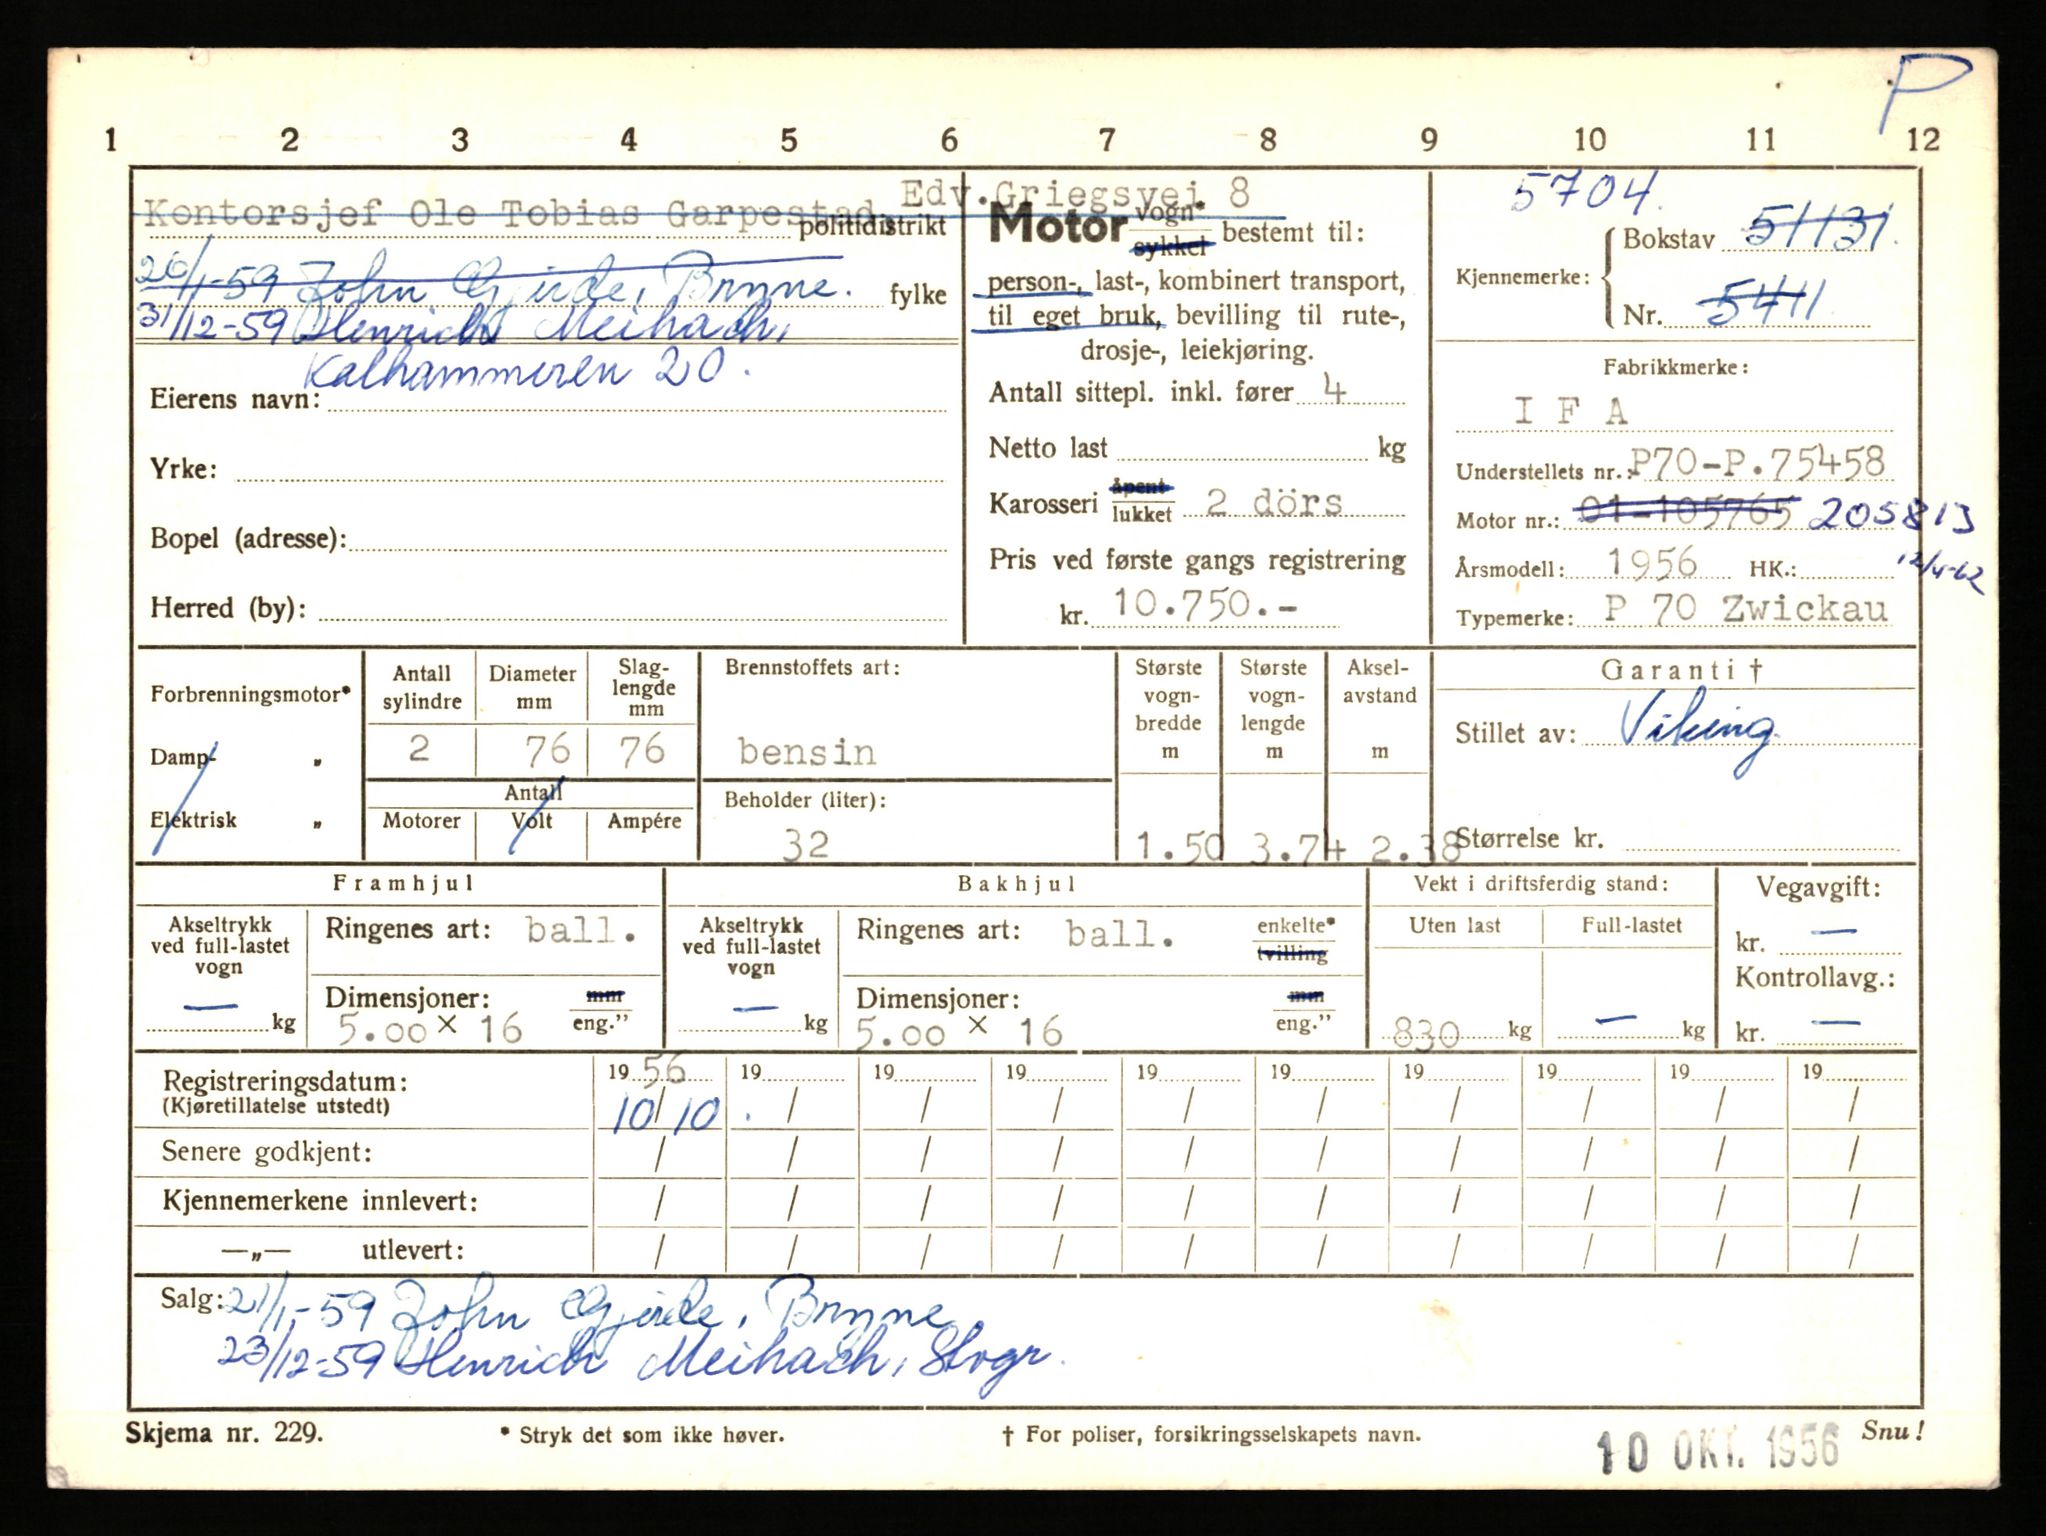 P
1 2 3 4 5 6 7 8 9 10 11 12
Kontorsjef Ole Tobias Garpestad Edv.Griegsvei 8
politidistrikt
26/1-59 John Gjerde, Bryne.
fylke
31/12-59 Henrich Meihach,
Kalhammeren 20.
Eierens navn:
Yrke:
Bopel (adresse):
Herred (by):
Motor vogn* sykkel bestemt til:
person-, last-, kombinert transport,
til eget bruk, bevilling til rute-,
drosje-, leiekjøring.
Antall sittepl. inkl. fører 4
Netto last kg
Karosseri åpent lukket 2 dörs
Pris ved første gangs registrering
kr. 10.750.-
5704.
Kjennemerke: Bokstav 51131.
Nr. 5411
Fabrikkmerke:
I F A
Understellets nr.: P70-P.75458
Motor nr.: 01-105765 205813
12/4-62
Årsmodell: 1956 HK.:
Typemerke: P 70 Zwickau
Forbrenningsmotor*
Damp- „
Elektrisk „
Antall sylindre
2
Diameter mm
76
Slag-lengde mm
76
Antall
Motorer Volt Ampére
Brennstoffets art:
bensin
Beholder (liter):
32
Største vogn-bredde m
1.50
Største vogn-lengde m
3.74
Aksel-avstand m
2.38
Garanti †
Stillet av: Viking
Størrelse kr.
Framhjul
Akseltrykk ved full-lastet vogn
— kg
Ringenes art: ball.
Dimensjoner: mm eng.”
5.00 × 16
Bakhjul
Akseltrykk ved full-lastet vogn
— kg
Ringenes art: ball. enkelte* tvilling
Dimensjoner: mm eng.”
5.00 × 16
Vekt i driftsferdig stand:
Uten last Full-lastet
830 kg — kg
Vegavgift:
kr. —
Kontrollavg.:
kr. —
Registreringsdatum: 19 56 19 19 19 19 19 19 19 19 19
(Kjøretillatelse utstedt) 10/10 / / / / / / / / /
Senere godkjent: / / / / / / / / / /
Kjennemerkene innlevert: / / / / / / / / / /
—„— utlevert: / / / / / / / / / /
Salg: 21/1-59 John Gjerde, Bryne
23/12-59 Henrich Meihach, Stvgr.
Skjema nr. 229. * Stryk det som ikke høver. † For poliser, forsikringsselskapets navn. 10 OKT. 1956 Snu!